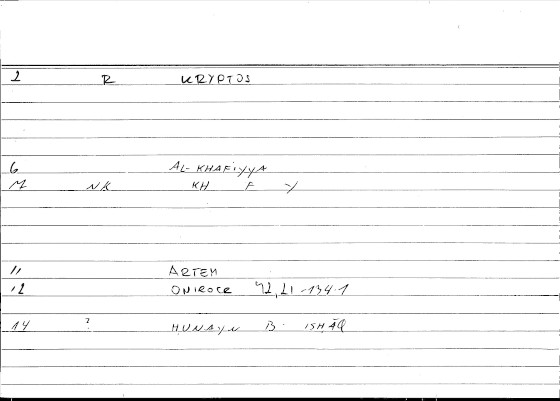 2 R KRYPTOS
6 AL-KHAFIYYA
M NK KH F Y
11 ARTEM
12 ONIROCR 42,21-134-1
14 ? HUNAYN B. ISHĀQ